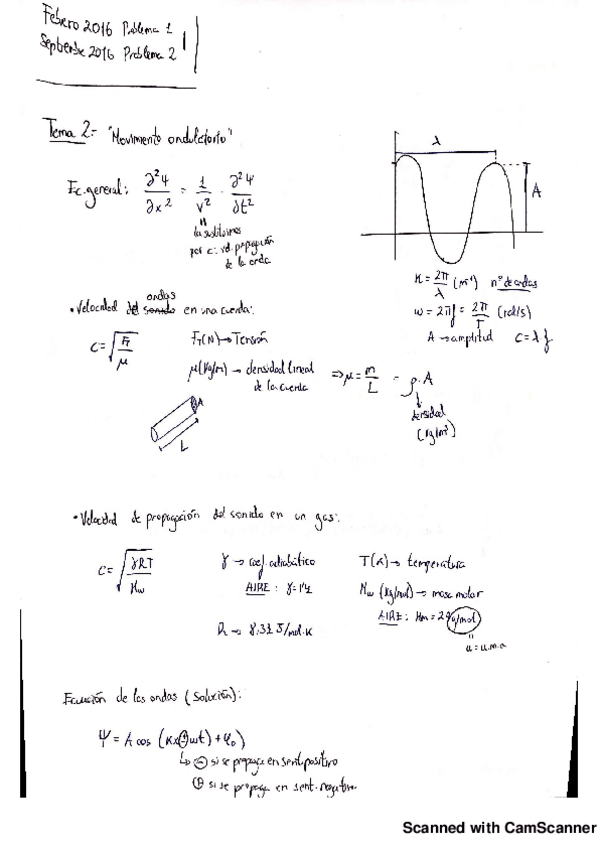 Febrero 2016 Problema 1
Septiembre 2016 Problema 2
Tema 2:- "Movimiento ondulatorio"
λ
A
Ec. general: ∂²Ψ/∂x² = 1/v² · ∂²Ψ/∂t²
"
la sustituimos
por c: vel. propagación
de la onda
K = 2π/λ (m⁻¹) nº de ondas
ω = 2πf = 2π/T (rad/s)
A → amplitud c = λ f
• Velocidad de ondas en una cuerda:
c = √(F_T/μ) F_T(N) → Tensión
μ(kg/m) → densidad lineal de la cuerda ⇒ μ = m/L = ρ·A
densidad
(kg/m³)
A
L
• Velocidad de propagación del sonido en un gas:
c = √(γRT/M_w) γ → coef. adiabático T(K) → temperatura
AIRE: γ = 1'4 M_w (kg/mol) → masa molar
R → 8.31 J/mol·K AIRE: M_m = 29 g/mol
"
u = u.m.a
Ecuación de las ondas (Solución):
Ψ = A cos (Kx ∓ ωt) + φ₀)
↳ ⊖ si se propaga en sent. positivo
⊕ si se propaga en sent. negativo
Scanned with CamScanner